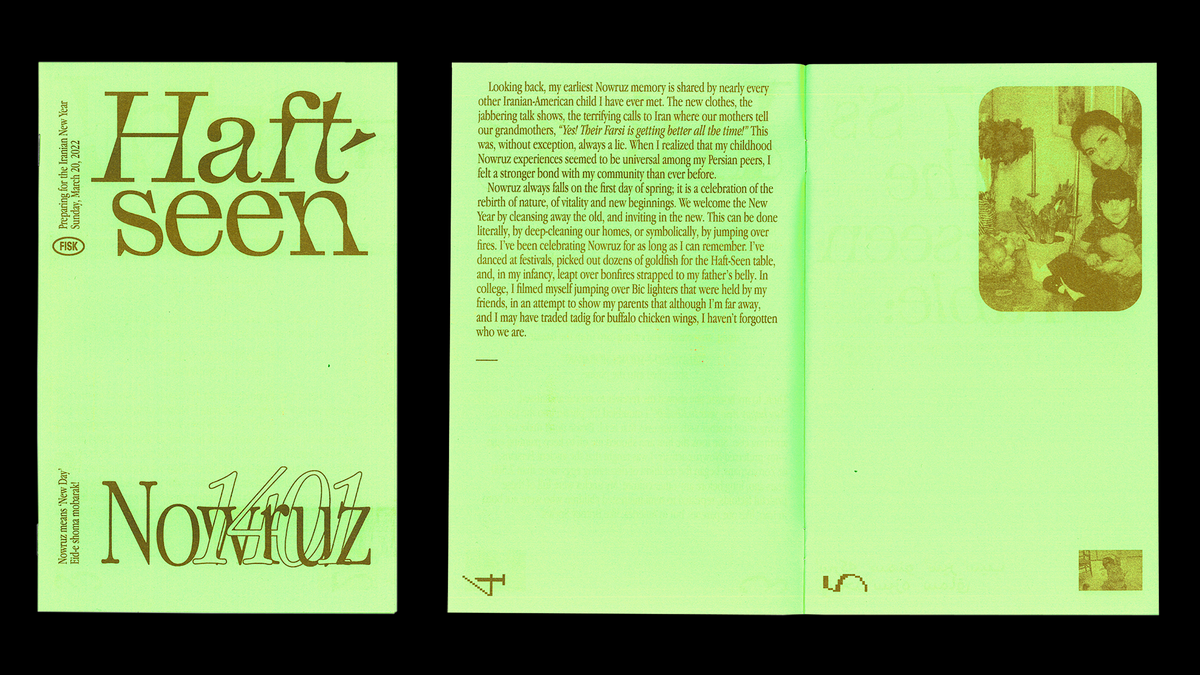 Preparing for the Iranian New Year
Sunday, March 20, 2022
FISK
Haft-
seen
Nowruz means ‘New Day’
Eid-e shoma mobarak!
Nowruz
1401
Looking back, my earliest Nowruz memory is shared by nearly every
other Iranian-American child I have ever met. The new clothes, the
jabbering talk shows, the terrifying calls to Iran where our mothers tell
our grandmothers, “Yes! Their Farsi is getting better all the time!” This
was, without exception, always a lie. When I realized that my childhood
Nowruz experiences seemed to be universal among my Persian peers, I
felt a stronger bond with my community than ever before.
Nowruz always falls on the first day of spring; it is a celebration of the
rebirth of nature, of vitality and new beginnings. We welcome the New
Year by cleansing away the old, and inviting in the new. This can be done
literally, by deep-cleaning our homes, or symbolically, by jumping over
fires. I’ve been celebrating Nowruz for as long as I can remember. I’ve
danced at festivals, picked out dozens of goldfish for the Haft-Seen table,
and, in my infancy, leapt over bonfires strapped to my father’s belly. In
college, I filmed myself jumping over Bic lighters that were held by my
friends, in an attempt to show my parents that although I’m far away,
and I may have traded tadig for buffalo chicken wings, I haven’t forgotten
who we are.
4
5